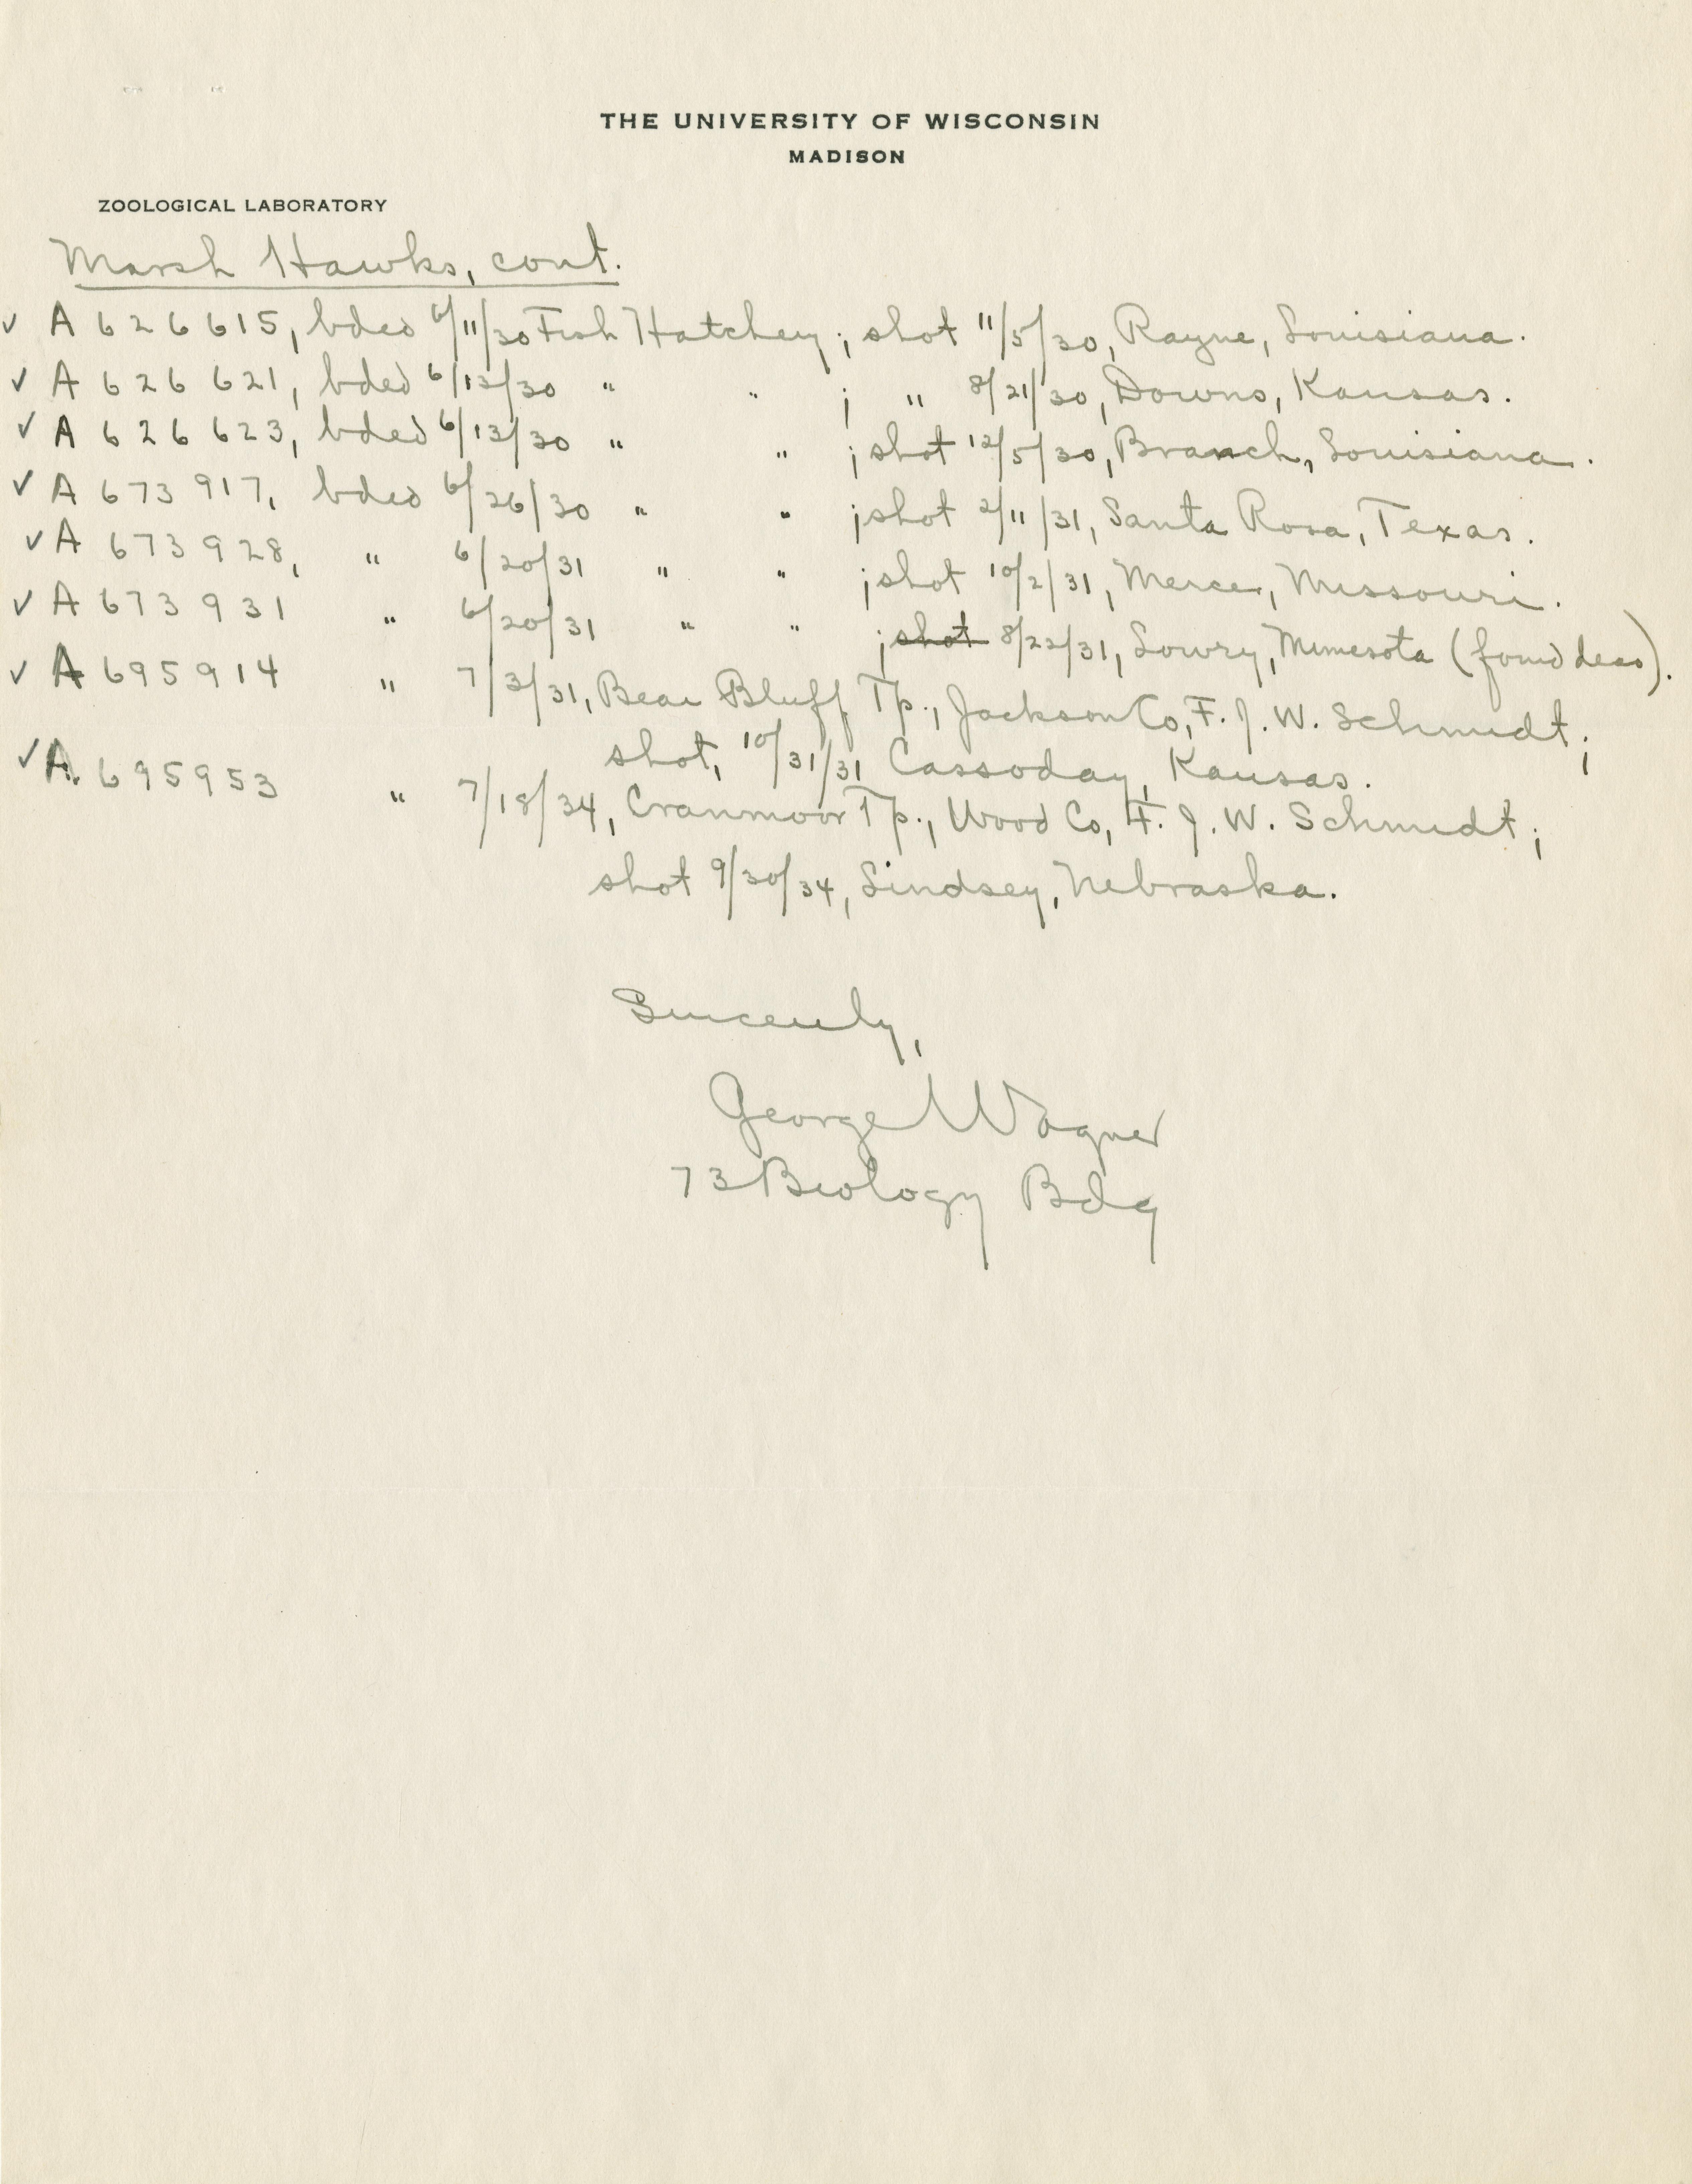 THE UNIVERSITY OF WISCONSIN
MADISON
ZOOLOGICAL LABORATORY
Marsh Hawks, cont.
✓ A 626615, bded 6/11/30 Fish Hatchery; shot 11/5/30, Rayne, Louisiana.
✓ A 626621, bded 6/13/30 " " ; " 8/21/30, Downs, Kansas.
✓ A 626623, bded 6/13/30 " " ; shot 12/5/30, Branch, Louisiana.
✓ A 673917, bded 6/26/30 " " ; shot 2/11/31, Santa Rosa, Texas.
✓ A 673928, " 6/20/31 " " ; shot 10/2/31, Mercer, Missouri.
✓ A 673931 " 6/20/31 " " ; shot 8/22/31, Lowry, Minnesota (found dead).
✓ A 695914 " 7/3/31, Bear Bluff Tp., Jackson Co, F. J. W. Schmidt;
shot, 10/31/31 Cassoday, Kansas.
✓ A. 695953 " 7/18/34, Cranmoor Tp., Wood Co, F. J. W. Schmidt;
shot 9/30/34, Lindsey, Nebraska.
Sincerely,
George Wagner
73 Biology Bdg